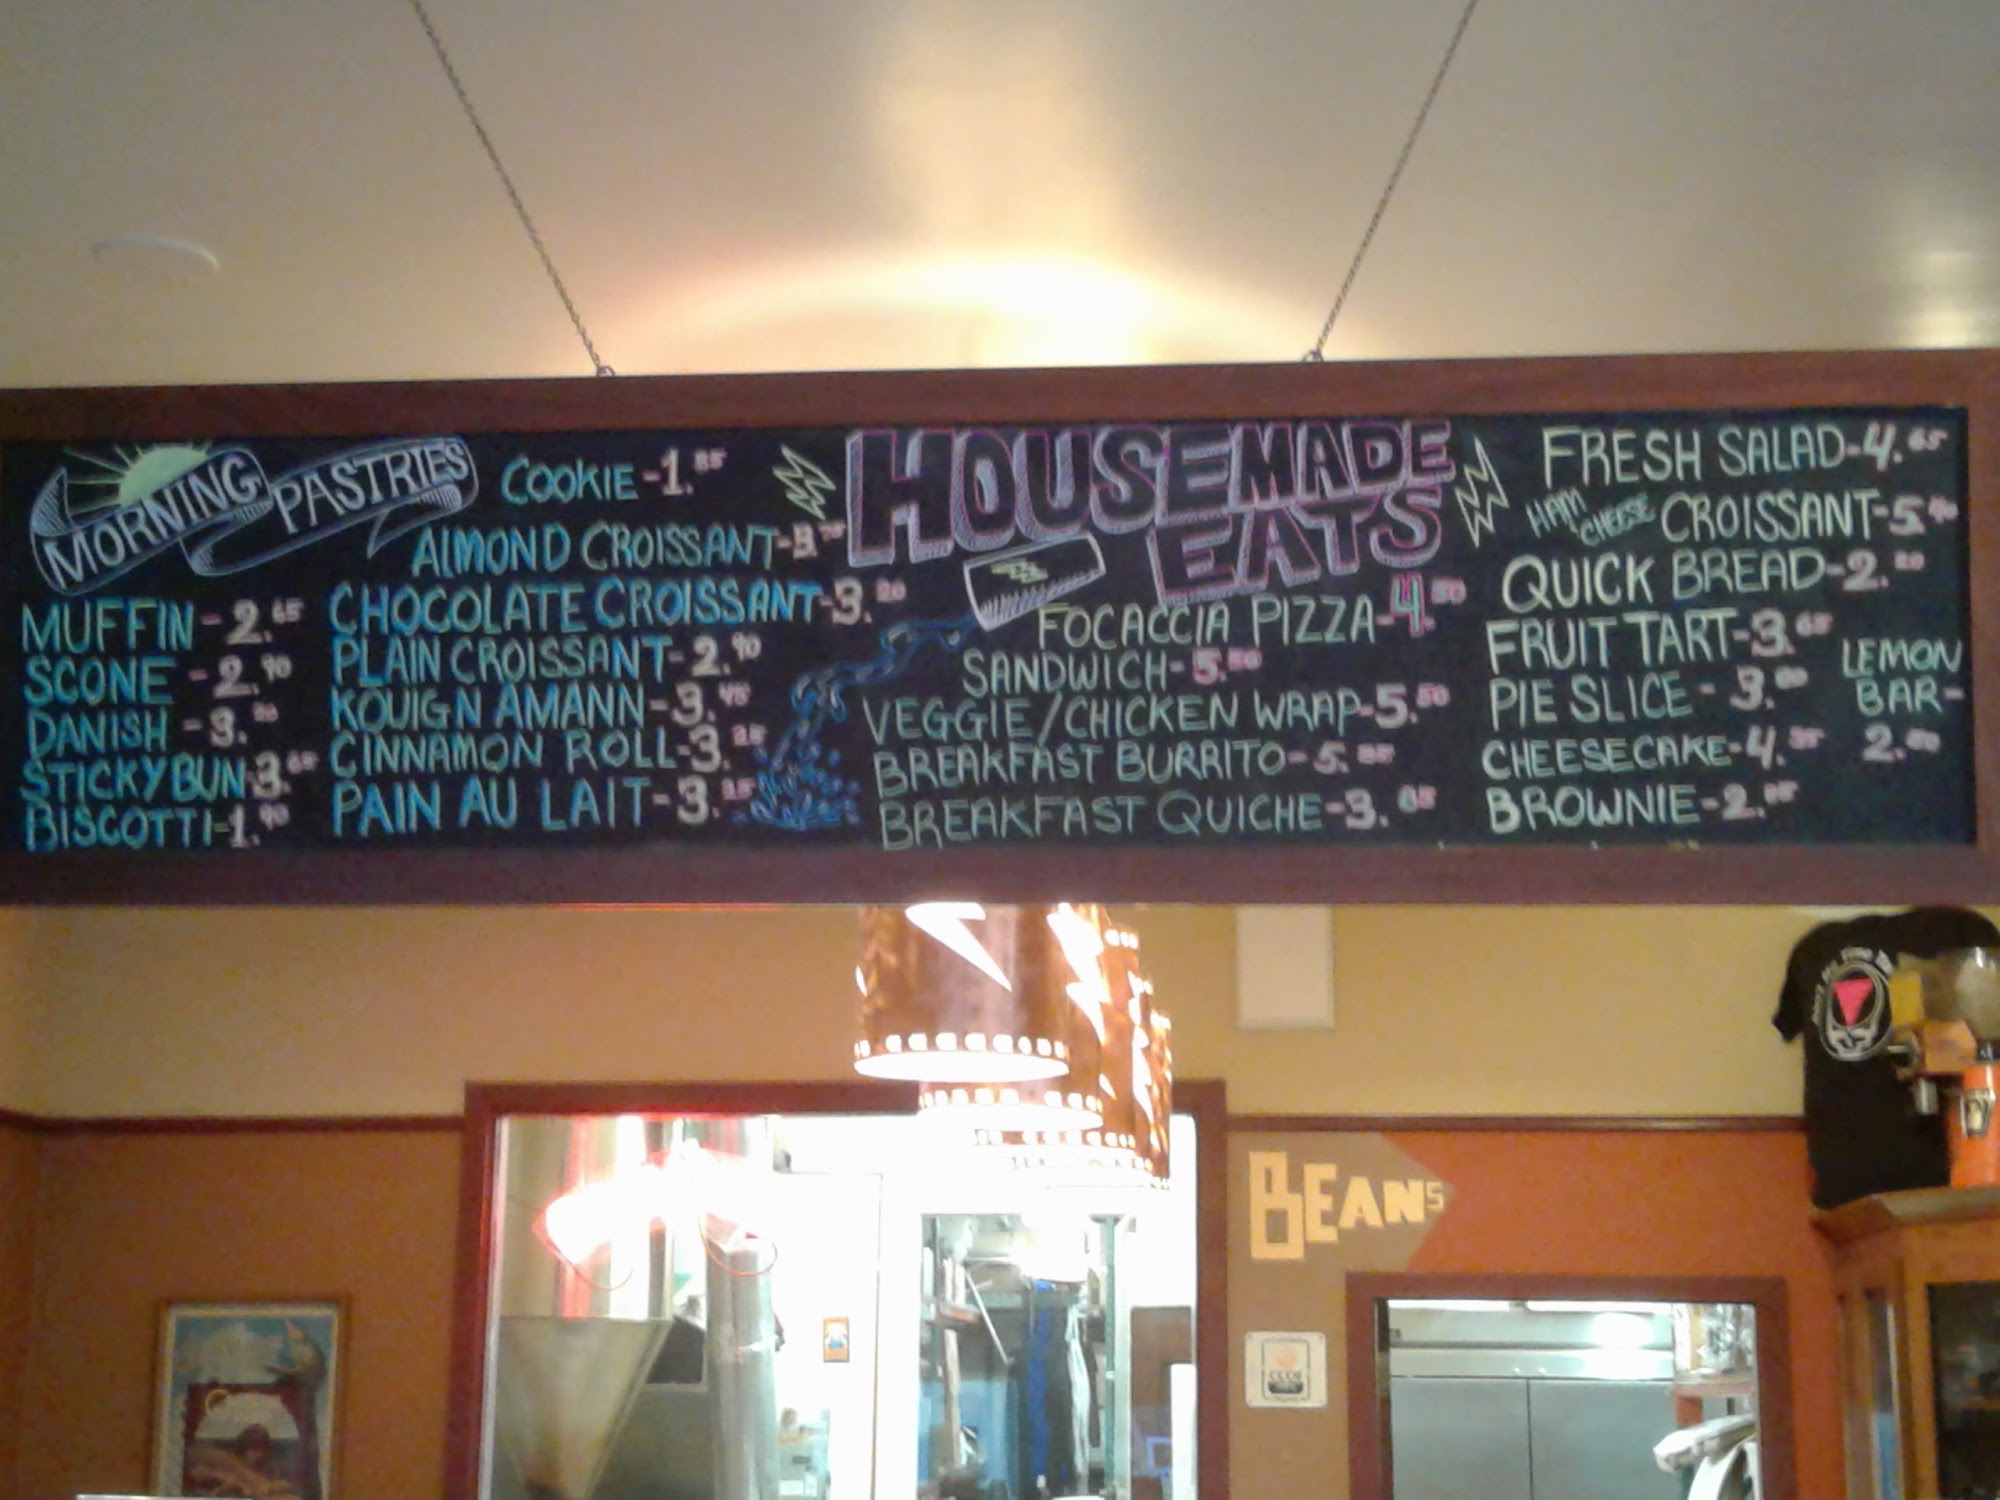 MORNING PASTRIES
MUFFIN - 2.65
SCONE - 2.90
DANISH - 3.20
STICKY BUN - 3.65
BISCOTTI - 1.90
COOKIE - 1.85
ALMOND CROISSANT - 3.70
CHOCOLATE CROISSANT - 3.20
PLAIN CROISSANT - 2.90
KOUIGN AMANN - 3.45
CINNAMON ROLL - 3.25
PAIN AU LAIT - 3.25
HOUSEMADE
EATS
FOCACCIA PIZZA - 4.50
SANDWICH - 5.50
VEGGIE/CHICKEN WRAP - 5.50
BREAKFAST BURRITO - 5.85
BREAKFAST QUICHE - 3.85
FRESH SALAD - 4.65
HAM CHEESE CROISSANT - 5.40
QUICK BREAD - 2.20
FRUIT TART - 3.65
PIE SLICE - 3.80
CHEESECAKE - 4.35
BROWNIE - 2.85
LEMON
BAR -
2.80
BEANS
CCOF